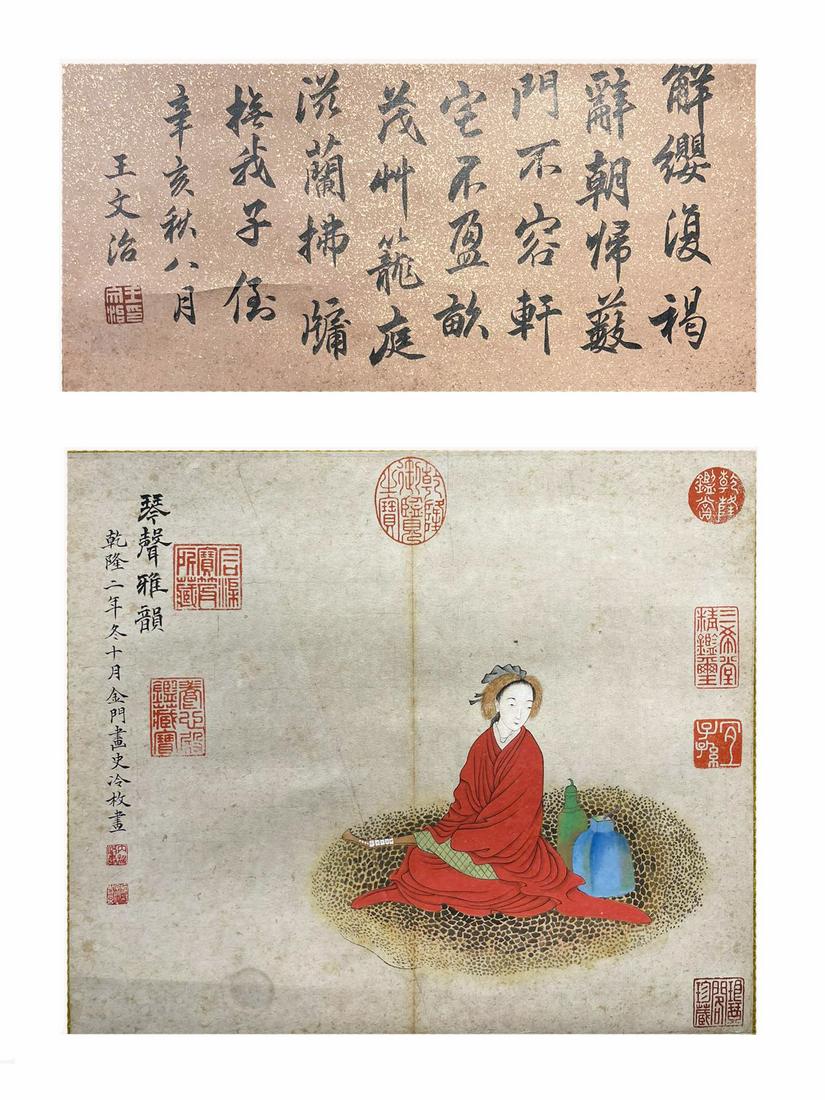 解纓復褐
辭朝歸藪
門不容軒
宅不盈畝
茂艸籠庭
滋蘭拂牖
撫我子侄
辛亥秋八月
王文治
琴聲雅韻
乾隆二年冬十月金門畫史冷枚畫
乾隆御覽之寶
乾隆鑑賞
三希堂精鑑璽
宜子孫
石渠寶笈所藏
養心殿鑑藏寶